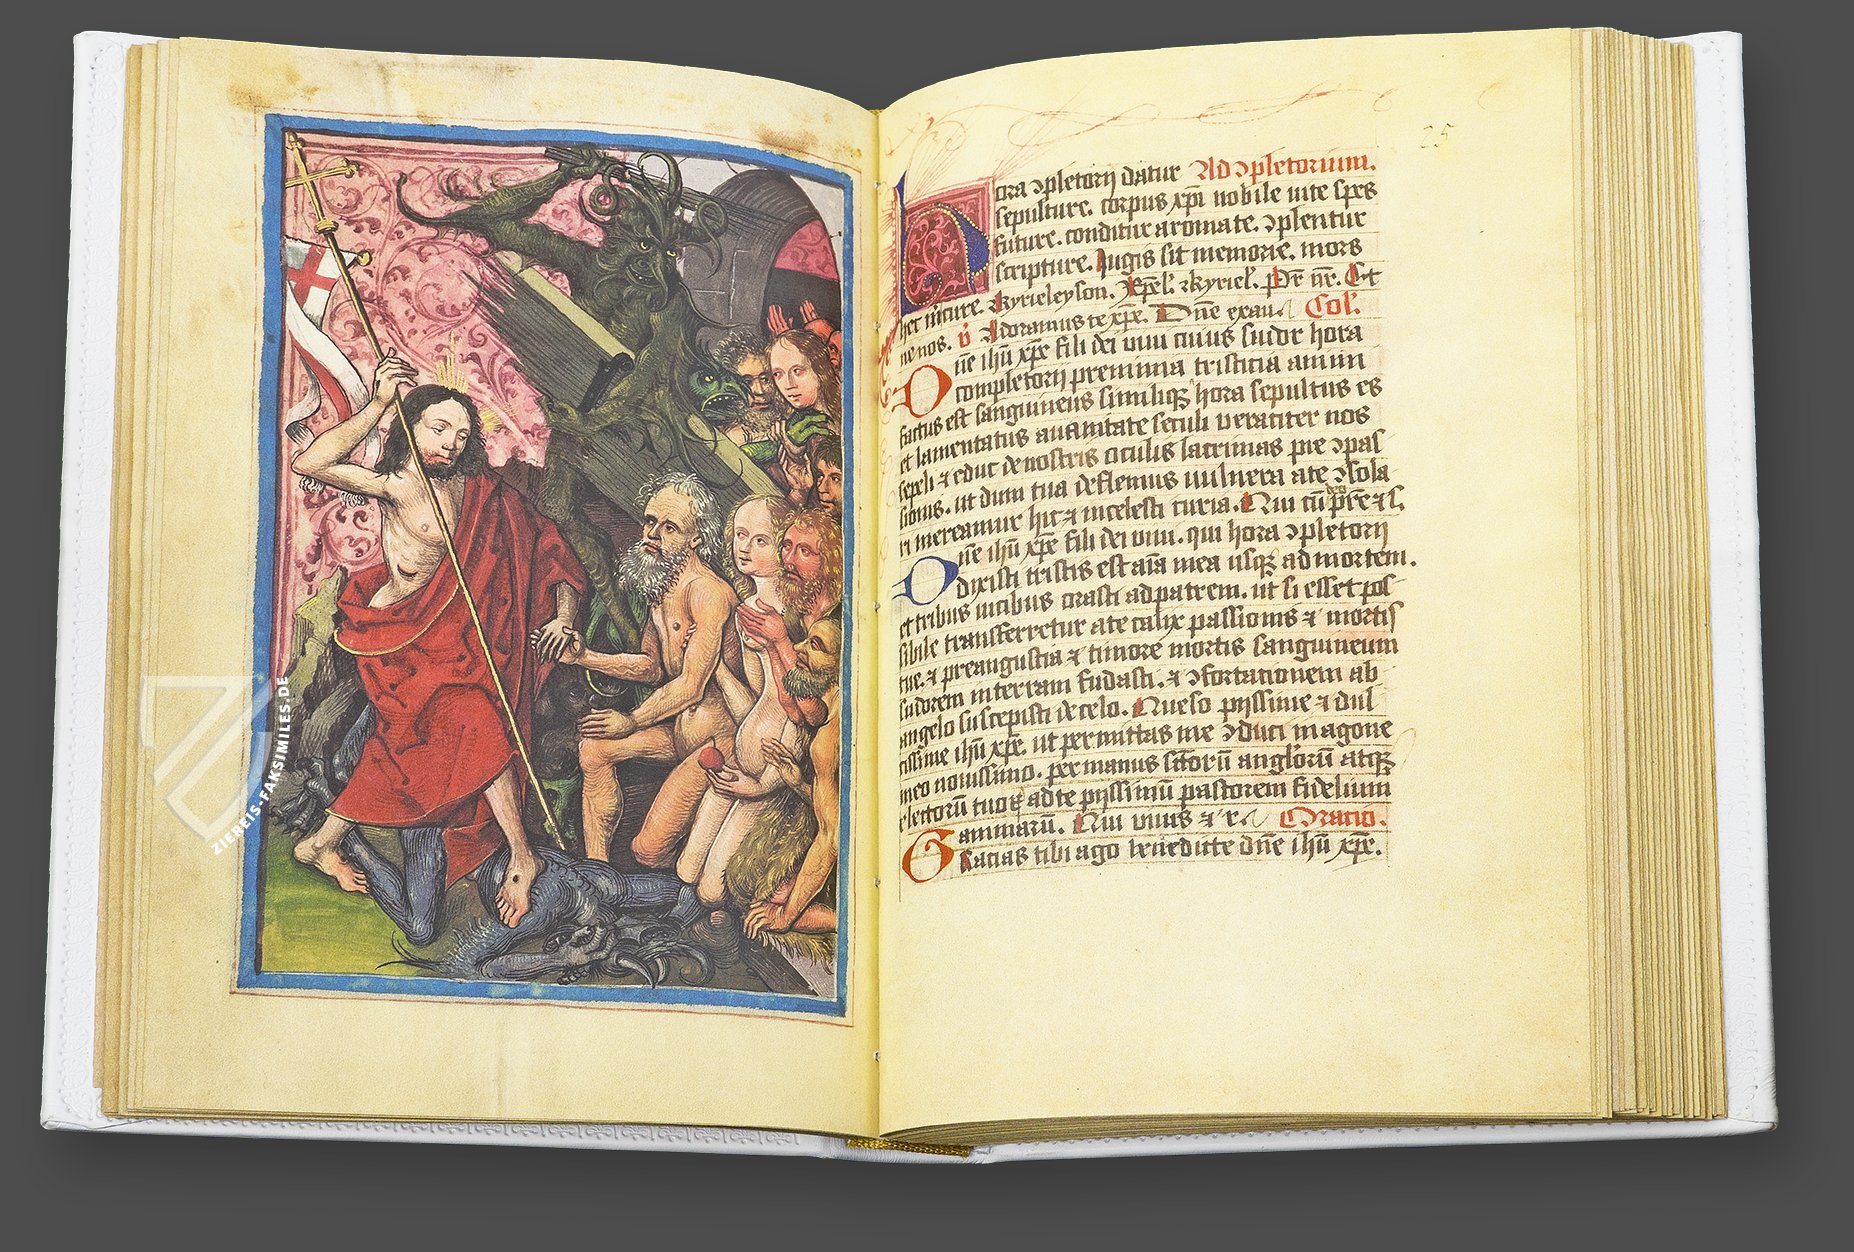 ZIEREIS-FAKSIMILES.DE
25
hora ↄpletorij datur Ad ↄpletorium.
sepulture. corpus xpi nobile uite spes
future. conditur aromate. ↄplentur
scripture. Iugis sit memorie. mors
hec in cure. Kyrieleyson. Xpel. Kyriel. Pr nr. Et
ne nos. v Adoramus te xpe. Dne exau Col.
Dne ihu xpe fili dei viui cuius sudor hora
completorij premima tristicia anim
factus est sanguineus similiqꝫ hora sepultus es
et lamentatus auanitate seculi veraciter nos
sepeli ⁊ educ de nostris oculis lacrimas pie ↄpas
sionis. ut dum tua deflemus uulnera a te ↄsola
ri mereamur hic ⁊ in celesti curia. Qui cu deo pre ⁊ s.
Dne ihu xpe fili dei viui. qui hora ↄpletorij
dixisti tristis est aia mea usqꝫ ad mortem.
et tribus uicibus orasti ad patrem. ut si esset pos
sibile transferretur a te calix passionis ⁊ mortis
tue. ⁊ preangustia ⁊ timore mortis sanguineum
sudorem in terram fudasti. ⁊ ↄfortationem ab
angelo suscepisti de celo. Queso pijssime ⁊ dul
cissime ihu xpe. ut permittas me ↄduci in agone
meo nouissimo. per manus sctoru angloru atqꝫ
electoru tuoꝝ ad te pijssimu pastorem fidelium
animaru. Qui viuis ⁊ r. Oratio.
Gracias tibi ago benedicte dne ihu xpe.